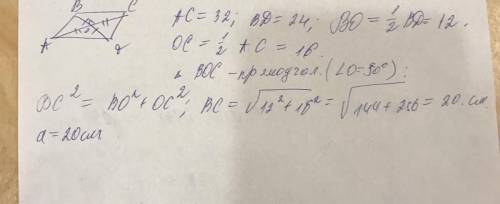 B C
A D
AC = 32; BD = 24; BO = 1/2 BD = 12.
OC = 1/2 AC = 16.
△ BOC - прямоугол. (∠O = 90°):
BC² = BO² + OC²; BC = √12² + 16² = √144 + 256 = 20. см
a = 20см